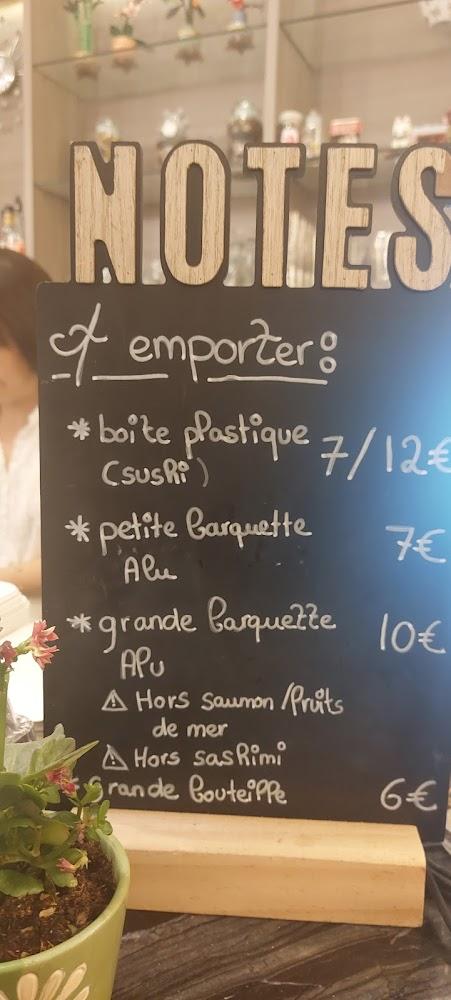 NOTES
A emporter :
* boite plastique 7/12€
(sushi)
* petite barquette 7€
Alu
* grande barquette 10€
Alu
⚠ Hors saumon/fruits
de mer
⚠ Hors sashimi
* Grande bouteille 6€